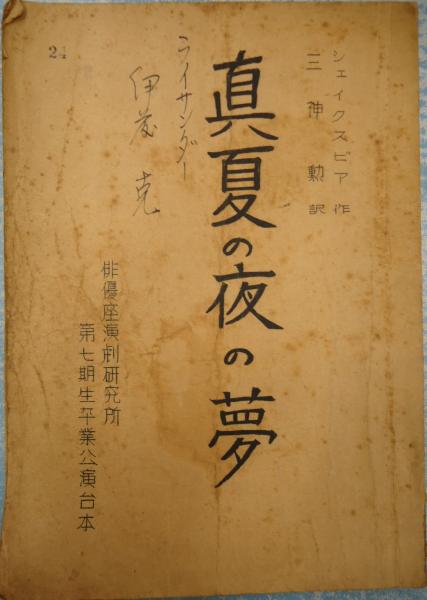 シェイクスピア作
三神勲訳
真夏の夜の夢
ライサンダー
伊藤克
24
俳優座演劇研究所
第七期生卒業公演台本